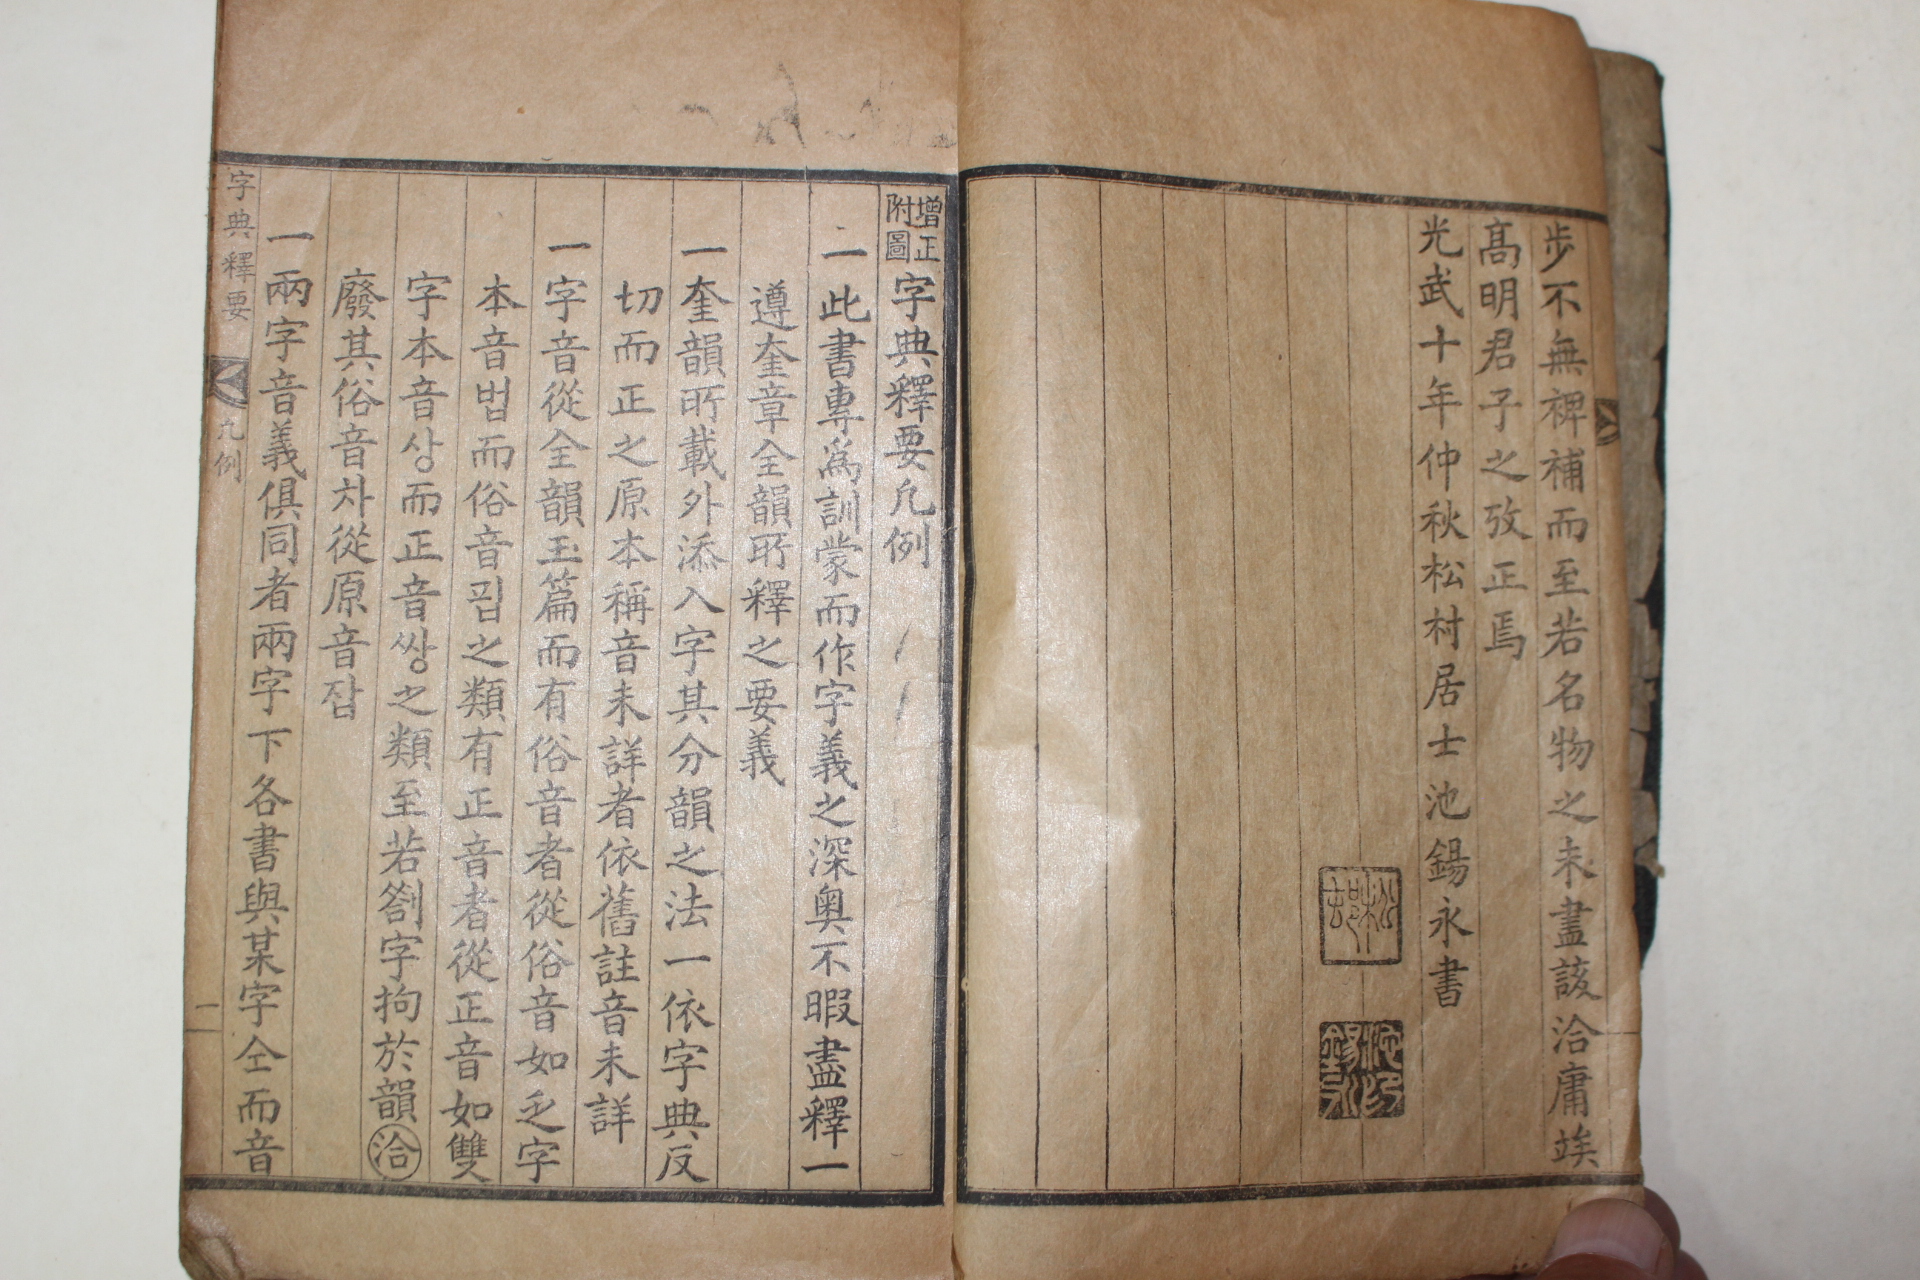 步不無裨補而至若名物之未盡該洽庸竢
髙明君子之攷正焉
光武十年仲秋松村居士池錫永書
池錫永
增正附圖字典釋要凡例
一此書專爲訓蒙而作字義之深奥不暇盡釋一
遵奎章全韻所釋之要義
一奎韻所載外添入字其分韻之法一依字典反
切而正之原本稱音未詳者依舊註音未詳
一字音從全韻玉篇而有俗音者從俗音如乏字
本音법而俗音핍之類有正音者從正音如雙
字本音상而正音쌍之類至若劄字拘於韻洽
廢其俗音차從原音잡
一兩字音義俱同者兩字下各書與某字仝而音
字典釋要
凡例
一